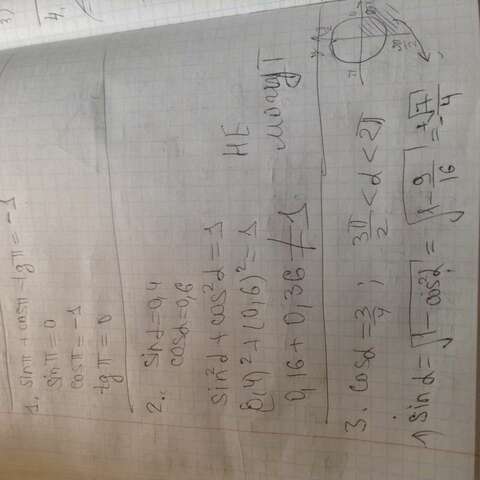 3)
4.
1. sin π + cos π - tg π = -1
sin π = 0
cos π = -1
tg π = 0
2. sin α = 0,4
cos α = 0,6
sin²α + cos²α = 1
(0,4)² + (0,6)² = 1
0,16 + 0,36 ≠ 1
НЕ
могут
3. cos α = 3/4 ; 3π/2 < α < 2π
π
3π/2
1) sin α = √1 - cos²α = √1 - 9/16 = ±√7/4